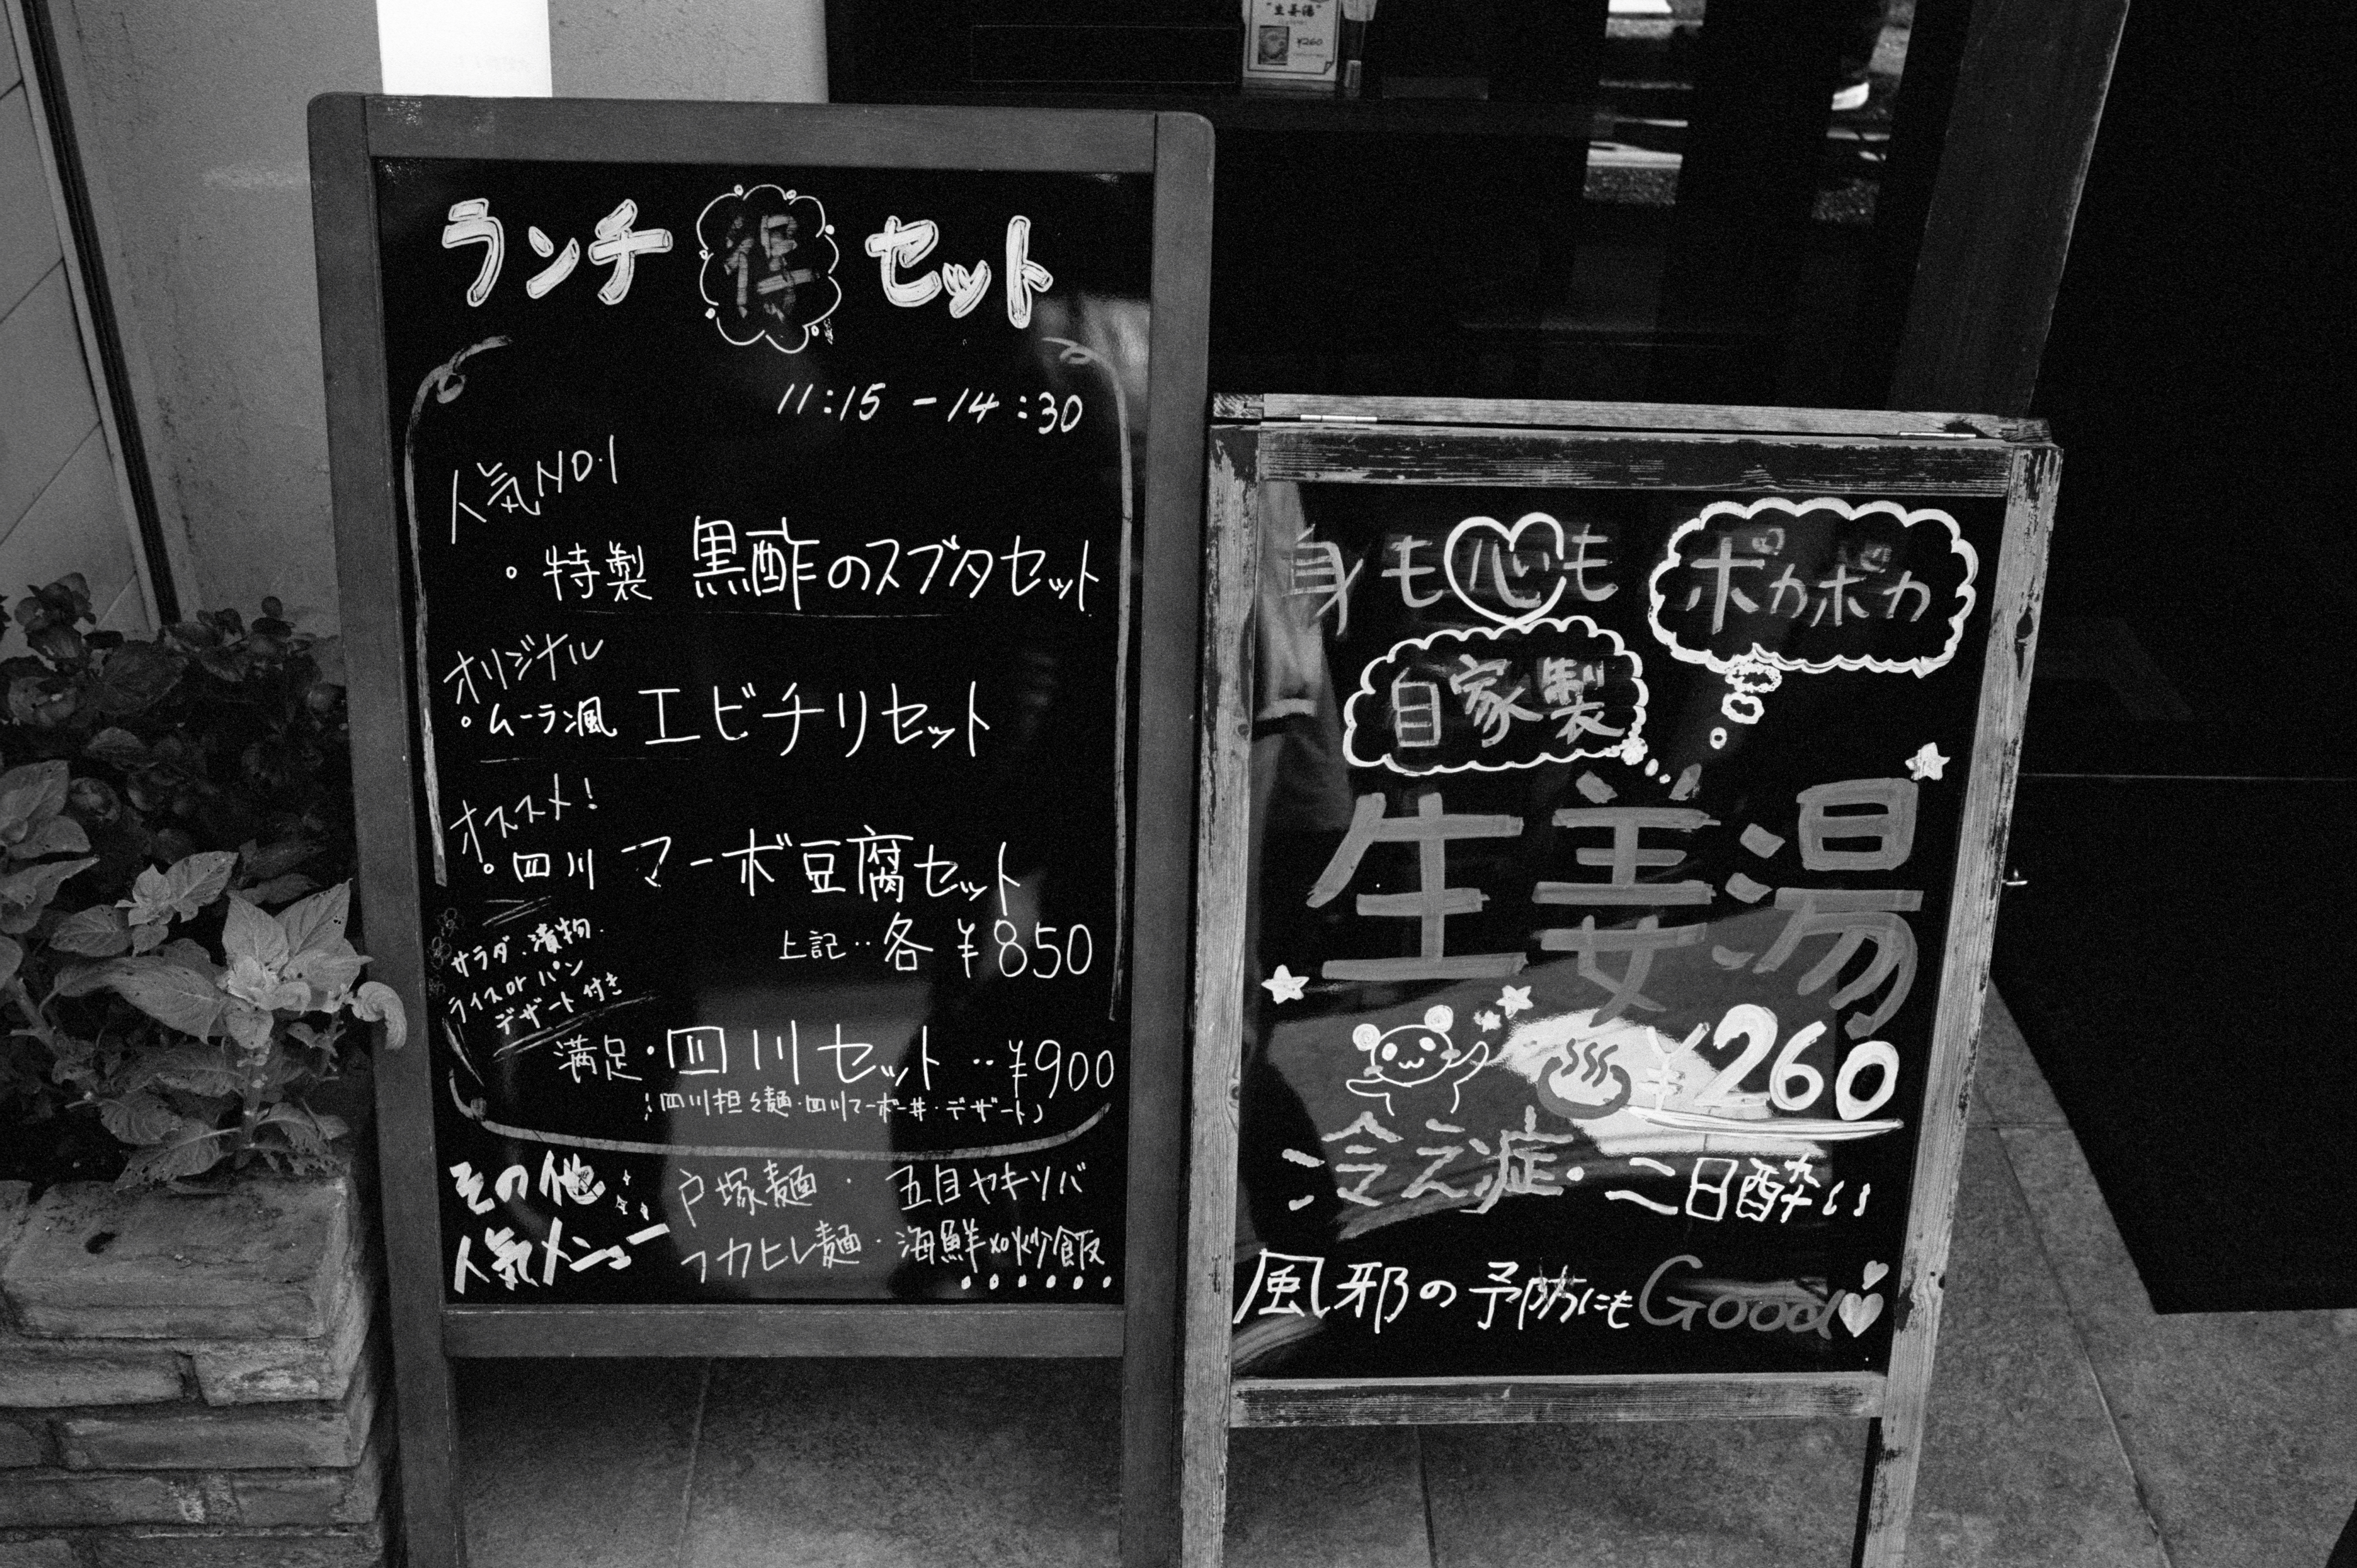 "生姜湯"
¥260
ランチ 得 セット
11:15 - 14:30
人気NO.1
・特製 黒酢のスブタセット
オリジナル
・ムーラン風 エビチリセット
オススメ!
・四川 マーボ豆腐セット
上記‥各 ¥850
サラダ・漬物・
ライスor パン
デザート付き
満足・四川セット‥¥900
(四川担々麺・四川マーボー丼・デザート)
その他
人気メニュー
戸塚麺・五目ヤキソバ
フカヒレ麺・海鮮XO炒飯
・・・・・・
身も心も
ポカポカ
自家製
生姜湯
¥260
冷え症・二日酔い
風邪の予防にもGood